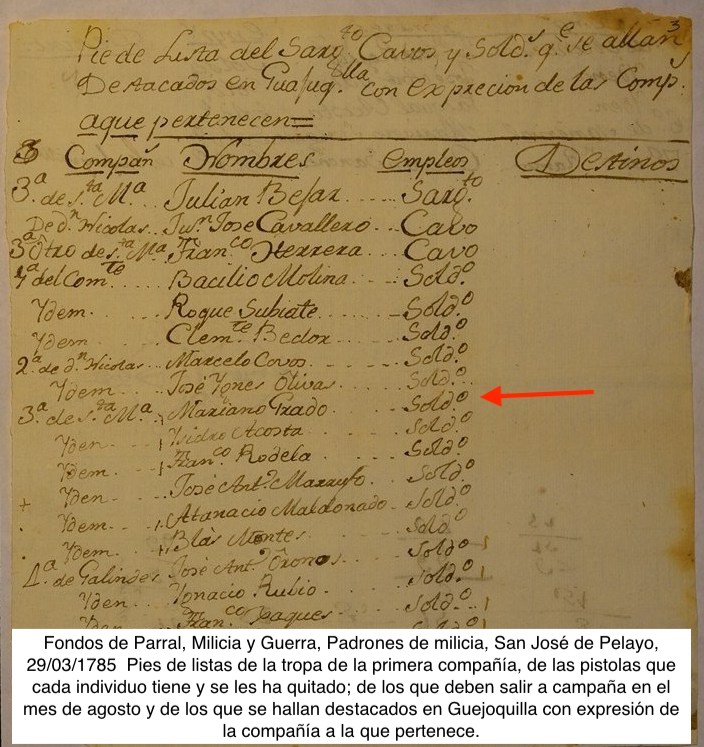 3
Pie de Lista del Sarg.to Cavos y Sold.s q.e se allán
Destacados en Guajuq.lla con exprecion de las Comp.
aque pertenecen=
Compañ Nombres Empleos Destinos
3.a de S.ta M.a Julian Befar Sarg.to
De d.n Nicolas Ju.n Jose Cavallero Cavo
3.a Otro de S.ta M.a Fran.co Herrera Cavo
1.a del Com.te Bacilio Molina Sold.o
Ydem. Roque Subiate Sold.o
Ydem Clem.te Bedox Sold.o
2.a de d.n Nicolas Marcelo Covos Sold.o
Ydem José Ygnes Olivas Sold.o
3.a de S.ta M.a Mariano Grado Sold.o
Yden Ysidro Acosta Sold.o
Ydem Fran.co Rodela Sold.o
Yden José Ant.o Marrufo Sold.o
Ydem Atanacio Maldonado Sold.o
Ydem Blàs Montes Sold.o
4.a de Galindes José Ant.o Òronos Sold.o
Yden Ygnacio Rubio Sold.o
Yden Fran.co Xaques Sold.o
Fondos de Parral, Milicia y Guerra, Padrones de milicia, San José de Pelayo,
29/03/1785 Pies de listas de la tropa de la primera compañía, de las pistolas que
cada individuo tiene y se les ha quitado; de los que deben salir a campaña en el
mes de agosto y de los que se hallan destacados en Guejoquilla con expresión de
la compañía a la que pertenece.